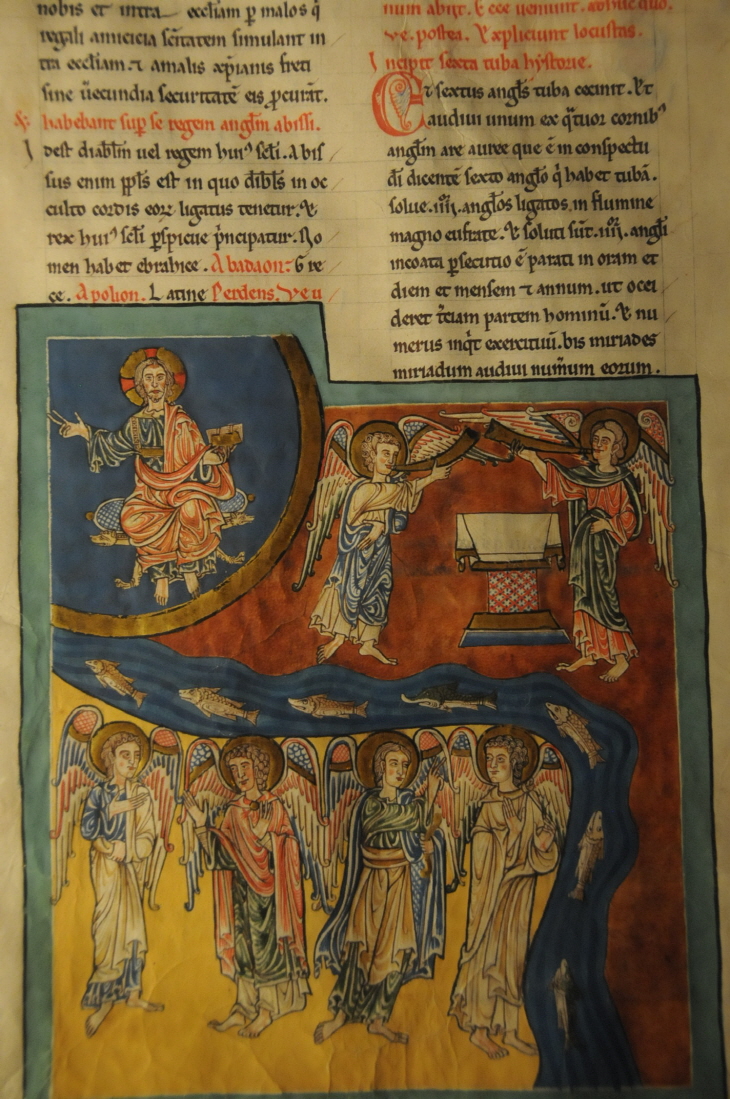 nobis et intra eccl̄iam ꝑ malos q̄
regali amicicia sc̄itatem simulant in
tra eccl̄iam. ⁊ amalis xp̄ianis freti
sine ūecundia securitatē eis ꝓcurāt.
habebant suꝑ se regem angl̄m abissi.
Idest diabl̄m uel regem hui᾽ scl̄i. Abis
sus enim ppl̄s est in quo dibl̄s in oc
culto cordis eoꝝ ligatus tenetur. &
rex hui᾽ scl̄i ꝑspicue p̄ncipatur. No
men habet ebraice. Abadaon: Gre
ce. Apolion. Latine Perdens. Ve u
num abijt. Ecce ueniunt. adhuc duo.
ve. postea. Expliciunt locustas.
Incipit sexta tuba hystorie.
Et sextus angl̄s tuba cecinit. Et
audiui unum ex q̄tuor cornib᾽
angl̄m are auree que ē in conspectu
d̄i dicentē sexto angl̄o q̄ habet tubā.
solue .iiii. angl̄os ligatos in flumine
magno eufrate. & soluti sūt .iiii. angl̄i
incoata ꝑsecutio ē parati in oram et
diem et mensem ⁊ annum. ut occi
deret t̄ciam partem hominū. & nu
merus inq̄t exercituū. bis miriades
miriadum audiui num̄um eorum.